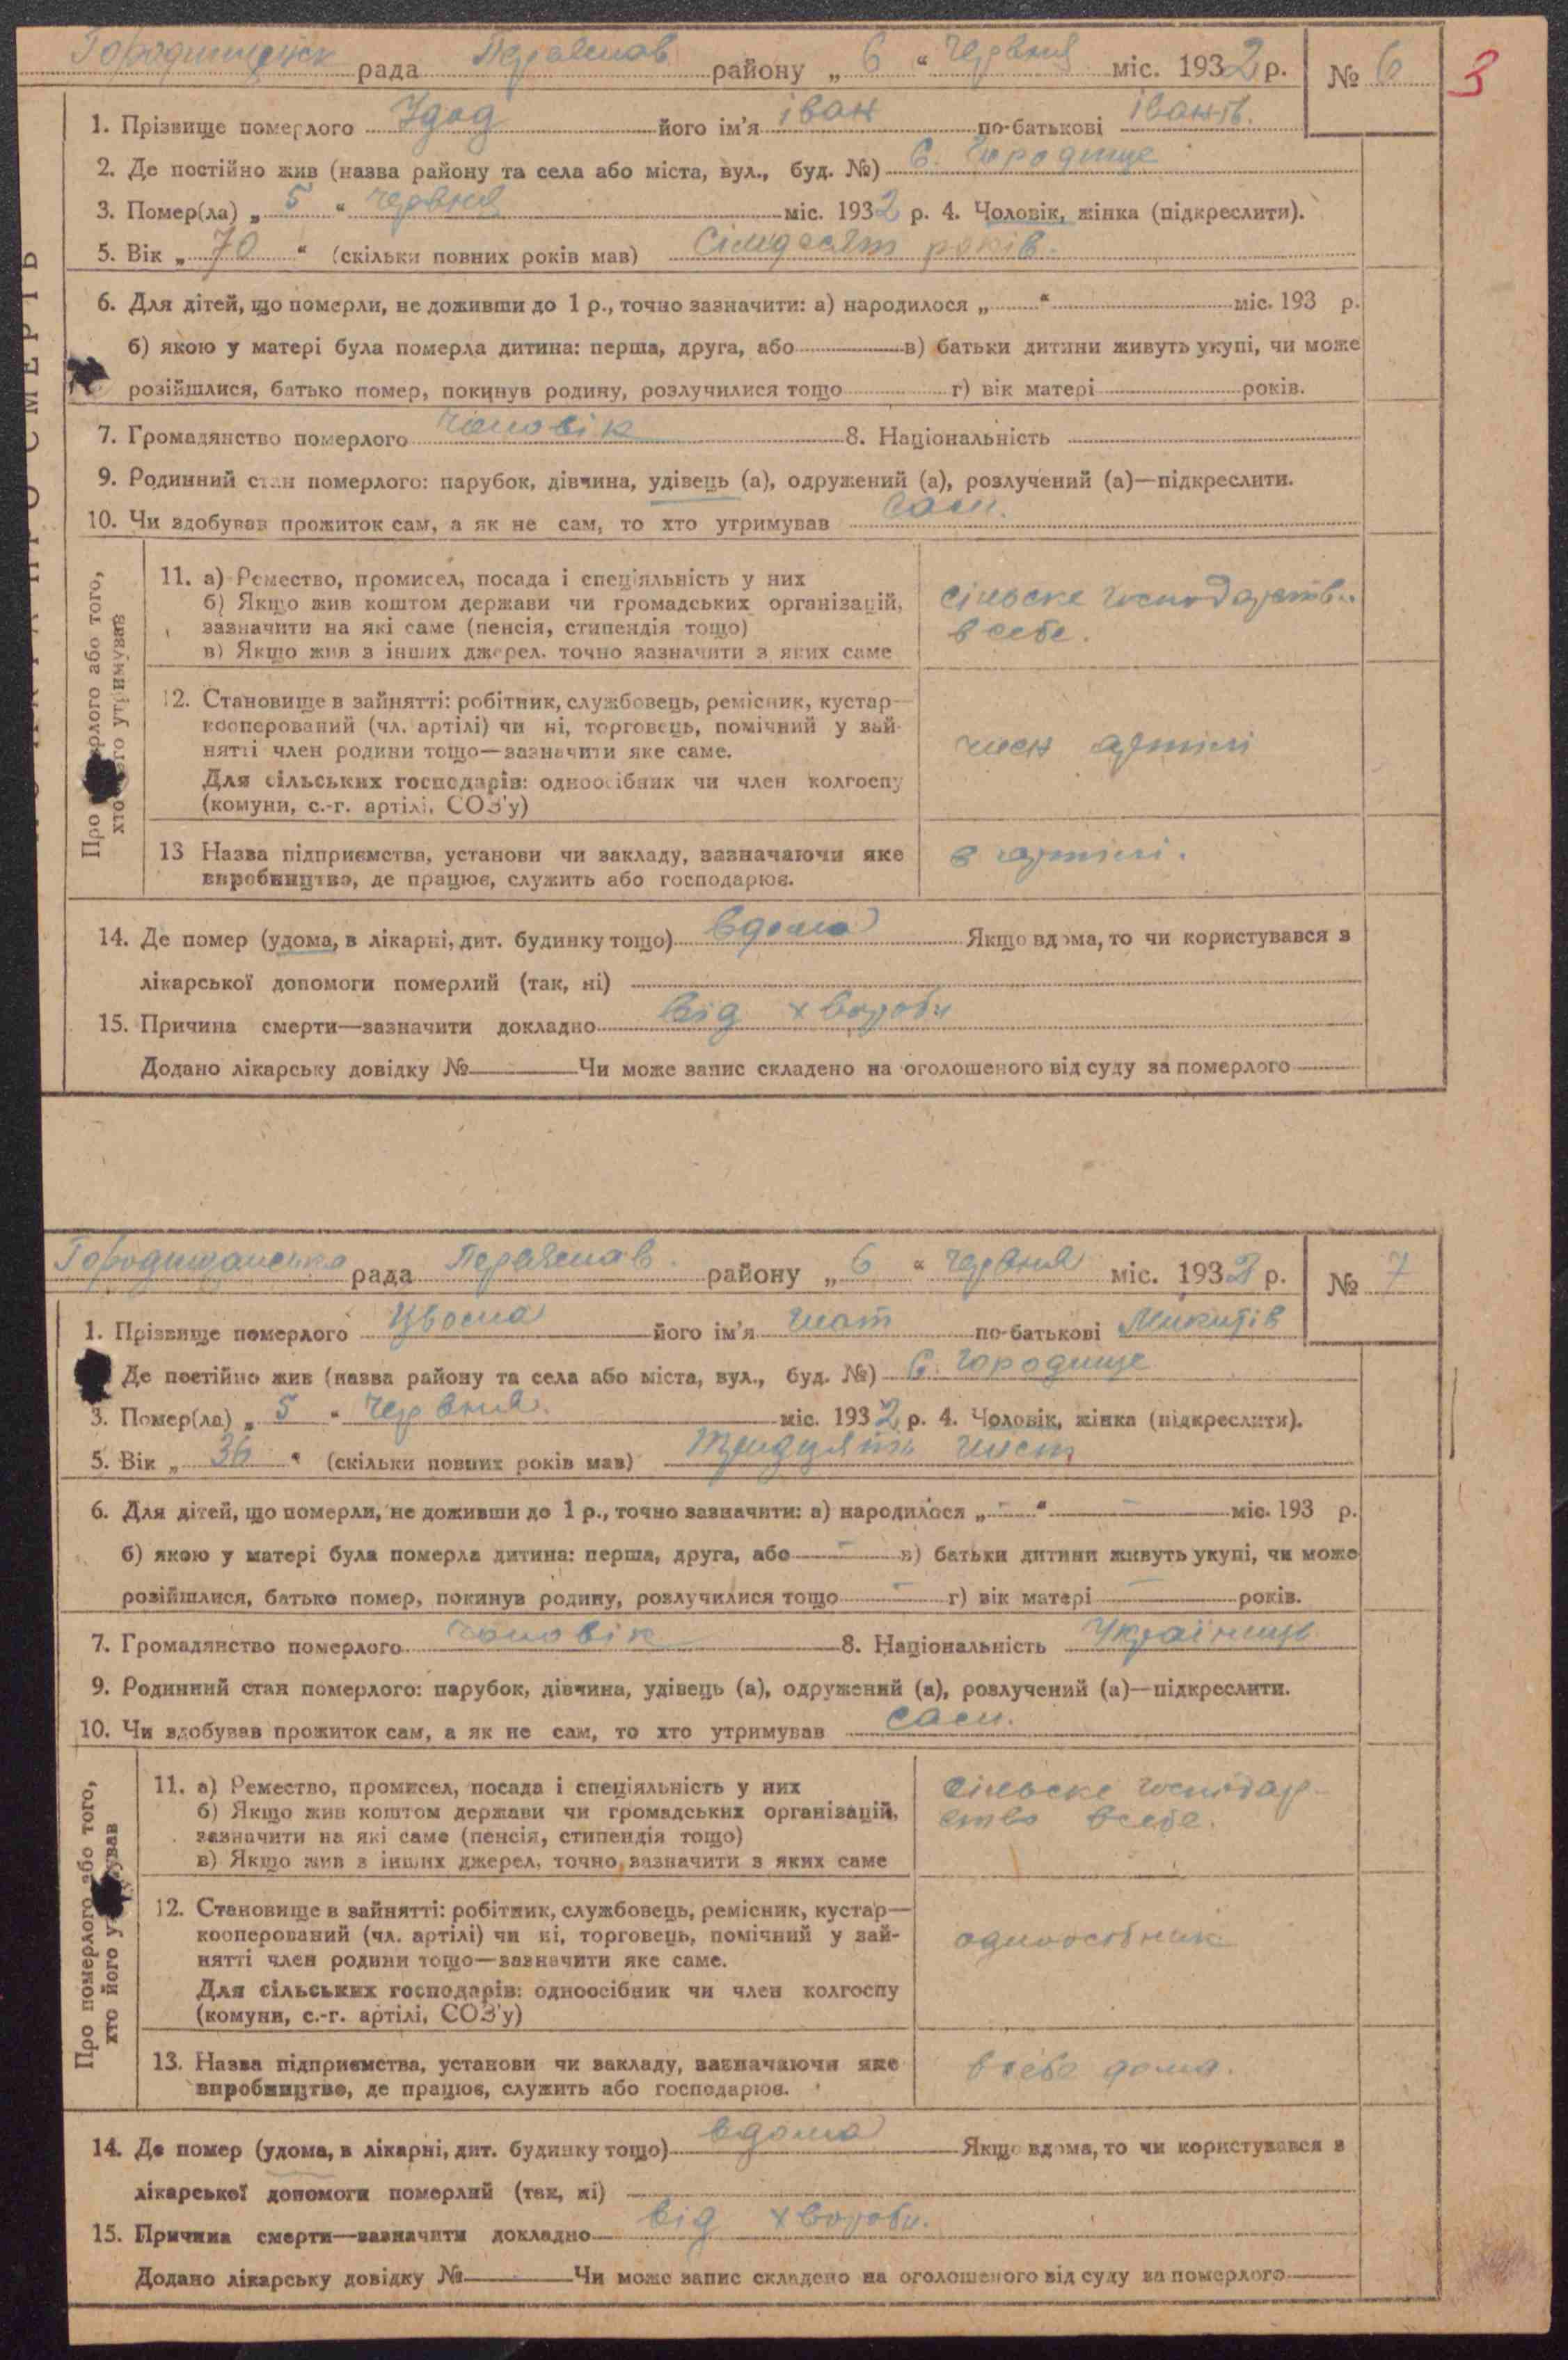 Городищенск рада Переяслав району „ 6 “ Червня міс. 1932 р. № 6
3
1. Прізвище померлого Удод його ім'я іван по-батькові іванів.
2. Де постійно жив (назва району та села або міста, вул., буд. №) С. Городище
3. Помер(ла) „ 5 “ червня міс. 1932 р. 4. Чоловік, жінка (підкреслити).
5. Вік „ 70 “ (скільки повних років мав) Сімдесят років.
6. Для дітей, що померли, не доживши до 1 р., точно зазначити: а) народилося „ “ міс. 193 р.
б) якою у матері була померла дитина: перша, друга, або в) батьки дитини живуть укупі, чи може
розійшлися, батько помер, покинув родину, розлучилися тощо г) вік матері років.
7. Громадянство померлого чоловік 8. Національність
9. Родинний стан померлого: парубок, дівчина, удівець (а), одружений (а), розлучений (а)—підкреслити.
10. Чи здобував прожиток сам, а як не сам, то хто утримував сам.
Про померлого або того, хто його утримував
11. а) Ремество, промисел, посада і спеціяльність у них
б) Якщо жив коштом держави чи громадських організацій,
зазначити на які саме (пенсія, стипендія тощо)
в) Якщо жив з інших джерел, точно зазначити з яких саме
сільське господарство
в себе.
12. Становище в зайнятті: робітник, службовець, ремісник, кустар—
кооперований (чл. артілі) чи ні, торговець, помічний у зай-
нятті член родини тощо—зазначити яке саме.
Для сільських господарів: одноосібник чи член колгоспу
(комуни, с.-г. артілі, СОЗ'у)
член артілі
13 Назва підприємства, установи чи закладу, зазначаючи яке
виробництво, де працює, служить або господарює.
в артілі.
14. Де помер (удома, в лікарні, дит. будинку тощо) вдома Якщо вдома, то чи користувався з
лікарської допомоги померлий (так, ні)
15. Причина смерти—зазначити докладно від хвороби
Додано лікарську довідку № Чи може запис складено на оголошеного від суду за померлого
Городищанська рада Переяслав. району „ 6 “ Червня міс. 1932 р. № 7
1. Прізвище померлого його ім'я по-батькові Микитів
Де постійно жив (назва району та села або міста, вул., буд. №) С. Городище
3. Помер(ла) „ 5 “ Червня. міс. 1932 р. 4. Чоловік, жінка (підкреслити).
5. Вік „ 36 “ (скільки повних років мав) Тридцять шист
6. Для дітей, що померли, не доживши до 1 р., точно зазначити: а) народилося „ – “ – міс. 193 р.
б) якою у матері була померла дитина: перша, друга, або – в) батьки дитини живуть укупі, чи може
розійшлися, батько помер, покинув родину, розлучилися тощо – г) вік матері – років.
7. Громадянство померлого чоловік 8. Національність Українець
9. Родинний стан померлого: парубок, дівчина, удівець (а), одружений (а), розлучений (а)—підкреслити.
10. Чи здобував прожиток сам, а як не сам, то хто утримував сам.
Про померлого або того, хто його утримував
11. а) Ремество, промисел, посада і спеціяльність у них
б) Якщо жив коштом держави чи громадських організацій,
зазначити на які саме (пенсія, стипендія тощо)
в) Якщо жив з інших джерел, точно зазначити з яких саме
сільське господар-
ство всебе.
12. Становище в зайнятті: робітник, службовець, ремісник, кустар—
кооперований (чл. артілі) чи ні, торговець, помічний у зай-
нятті член родини тощо—зазначити яке саме.
Для сільських господарів: одноосібник чи член колгоспу
(комуни, с.-г. артілі, СОЗ'у)
одноосібник
13. Назва підприємства, установи чи закладу, зазначаючи яке
виробництво, де працює, служить або господарює.
всебе дома.
14. Де помер (удома, в лікарні, дит. будинку тощо) вдома Якщо вдома, то чи користувався з
лікарської допомоги померлий (так, ні)
15. Причина смерти—зазначити докладно від хвороби.
Додано лікарську довідку № Чи може запис складено на оголошеного від суду за померлого